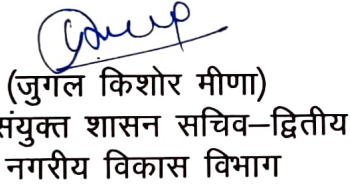 (जुगल किशोर मीणा)
संयुक्त शासन सचिव–द्वितीय
नगरीय विकास विभाग